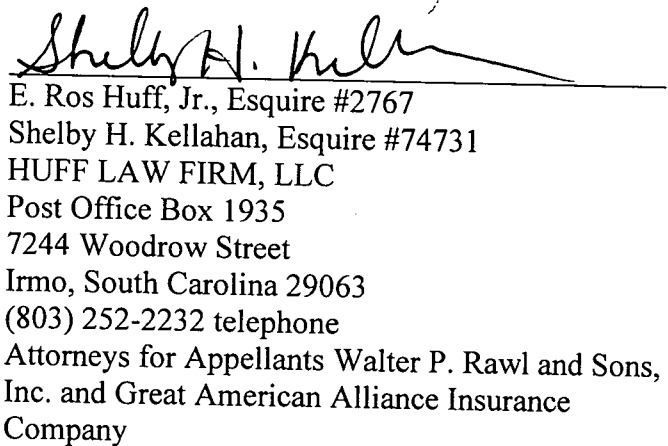 Shelby H. Kell
E. Ros Huff, Jr., Esquire #2767
Shelby H. Kellahan, Esquire #74731
HUFF LAW FIRM, LLC
Post Office Box 1935
7244 Woodrow Street
Irmo, South Carolina 29063
(803) 252-2232 telephone
Attorneys for Appellants Walter P. Rawl and Sons,
Inc. and Great American Alliance Insurance
Company